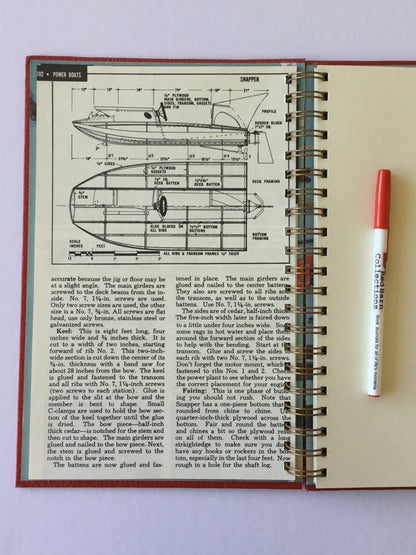 702 • POWER BOATS
SNAPPER
¼" PLYWOOD
MAIN GIRDERS, BOTTOM,
SIDES, TRANSOM, GUSSETS
AND FIN
PROFILE
RUDDER BLOCK
¼" PLYWOOD
GUSSETS
DECK BATTEN
DECK FRAMING
STEM
GLUE BLOCKS ON
ALL RIBS
BOTTOM
BATTENS
BOTTOM
FRAMING
SCALE
INCHES
FEET
ALL RIBS & TRANSOM FRAMES ½" THICK
accurate because the jig or floor may be
at a slight angle. The main girders are
screwed to the deck beams from the in-
side. No. 7, 1¼-in. screws are used.
Only two screw sizes are used, the other
size is a No. 7, ¾-in. All screws are flat
head, use only bronze, stainless steel or
galvanized screws.
Keel: This is eight feet long, four
inches wide and ¾ inches thick. It is
cut to a width of two inches, starting
forward of rib No. 2. This two-inch-
wide section is cut down the center of its
¾-in. thickness with a band saw for
about 28 inches from the bow. The keel
is glued and fastened to the transom
and all ribs with No. 7, 1¼-inch screws
(two screws to each station). Glue is
applied to the slit at the bow and the
member is bent to shape. Small
C-clamps are used to hold the bow sec-
tion of the keel together until the glue
is dried. The bow piece—half-inch
thick cedar—is notched for the stem and
then cut to shape. The main girders are
glued and nailed to the bow piece. Next,
the stem is glued and screwed to the
notch in the bow piece.
The battens are now glued and fas-
tened in place. The main girders are
glued and nailed to the center battens.
They also are screwed to all ribs and
the transom, as well as to the outside
battens. Use No. 7, 1¼-in. screws.
The sides are of cedar, half-inch thick.
The five-inch width later is faired down
to a little under four inches wide. Soak
some rags in hot water and place them
around the forward section of the sides
to help with the bending. Start at the
transom. Glue and screw the sides to
each rib with two No. 7, 1¼-in. screws.
Don't forget the motor mount, which is
fastened to ribs Nos. 1 and 2. Check
the power plant to see whether you have
the correct placement for your engine.
Fairing: This is one phase of build-
ing you should not rush. Note that
Snapper has a one-piece bottom that is
rounded from chine to chine. Use
quarter-inch-thick plywood across the
bottom. Fair and round the battens
and chines a bit so the plywood rests
on all of them. Check with a long
straightedge to make sure you don't
have any hooks or rockers in the bot-
tom, especially in the last four feet. Now
rough in a hole for the shaft log.
Red Barn
Collections